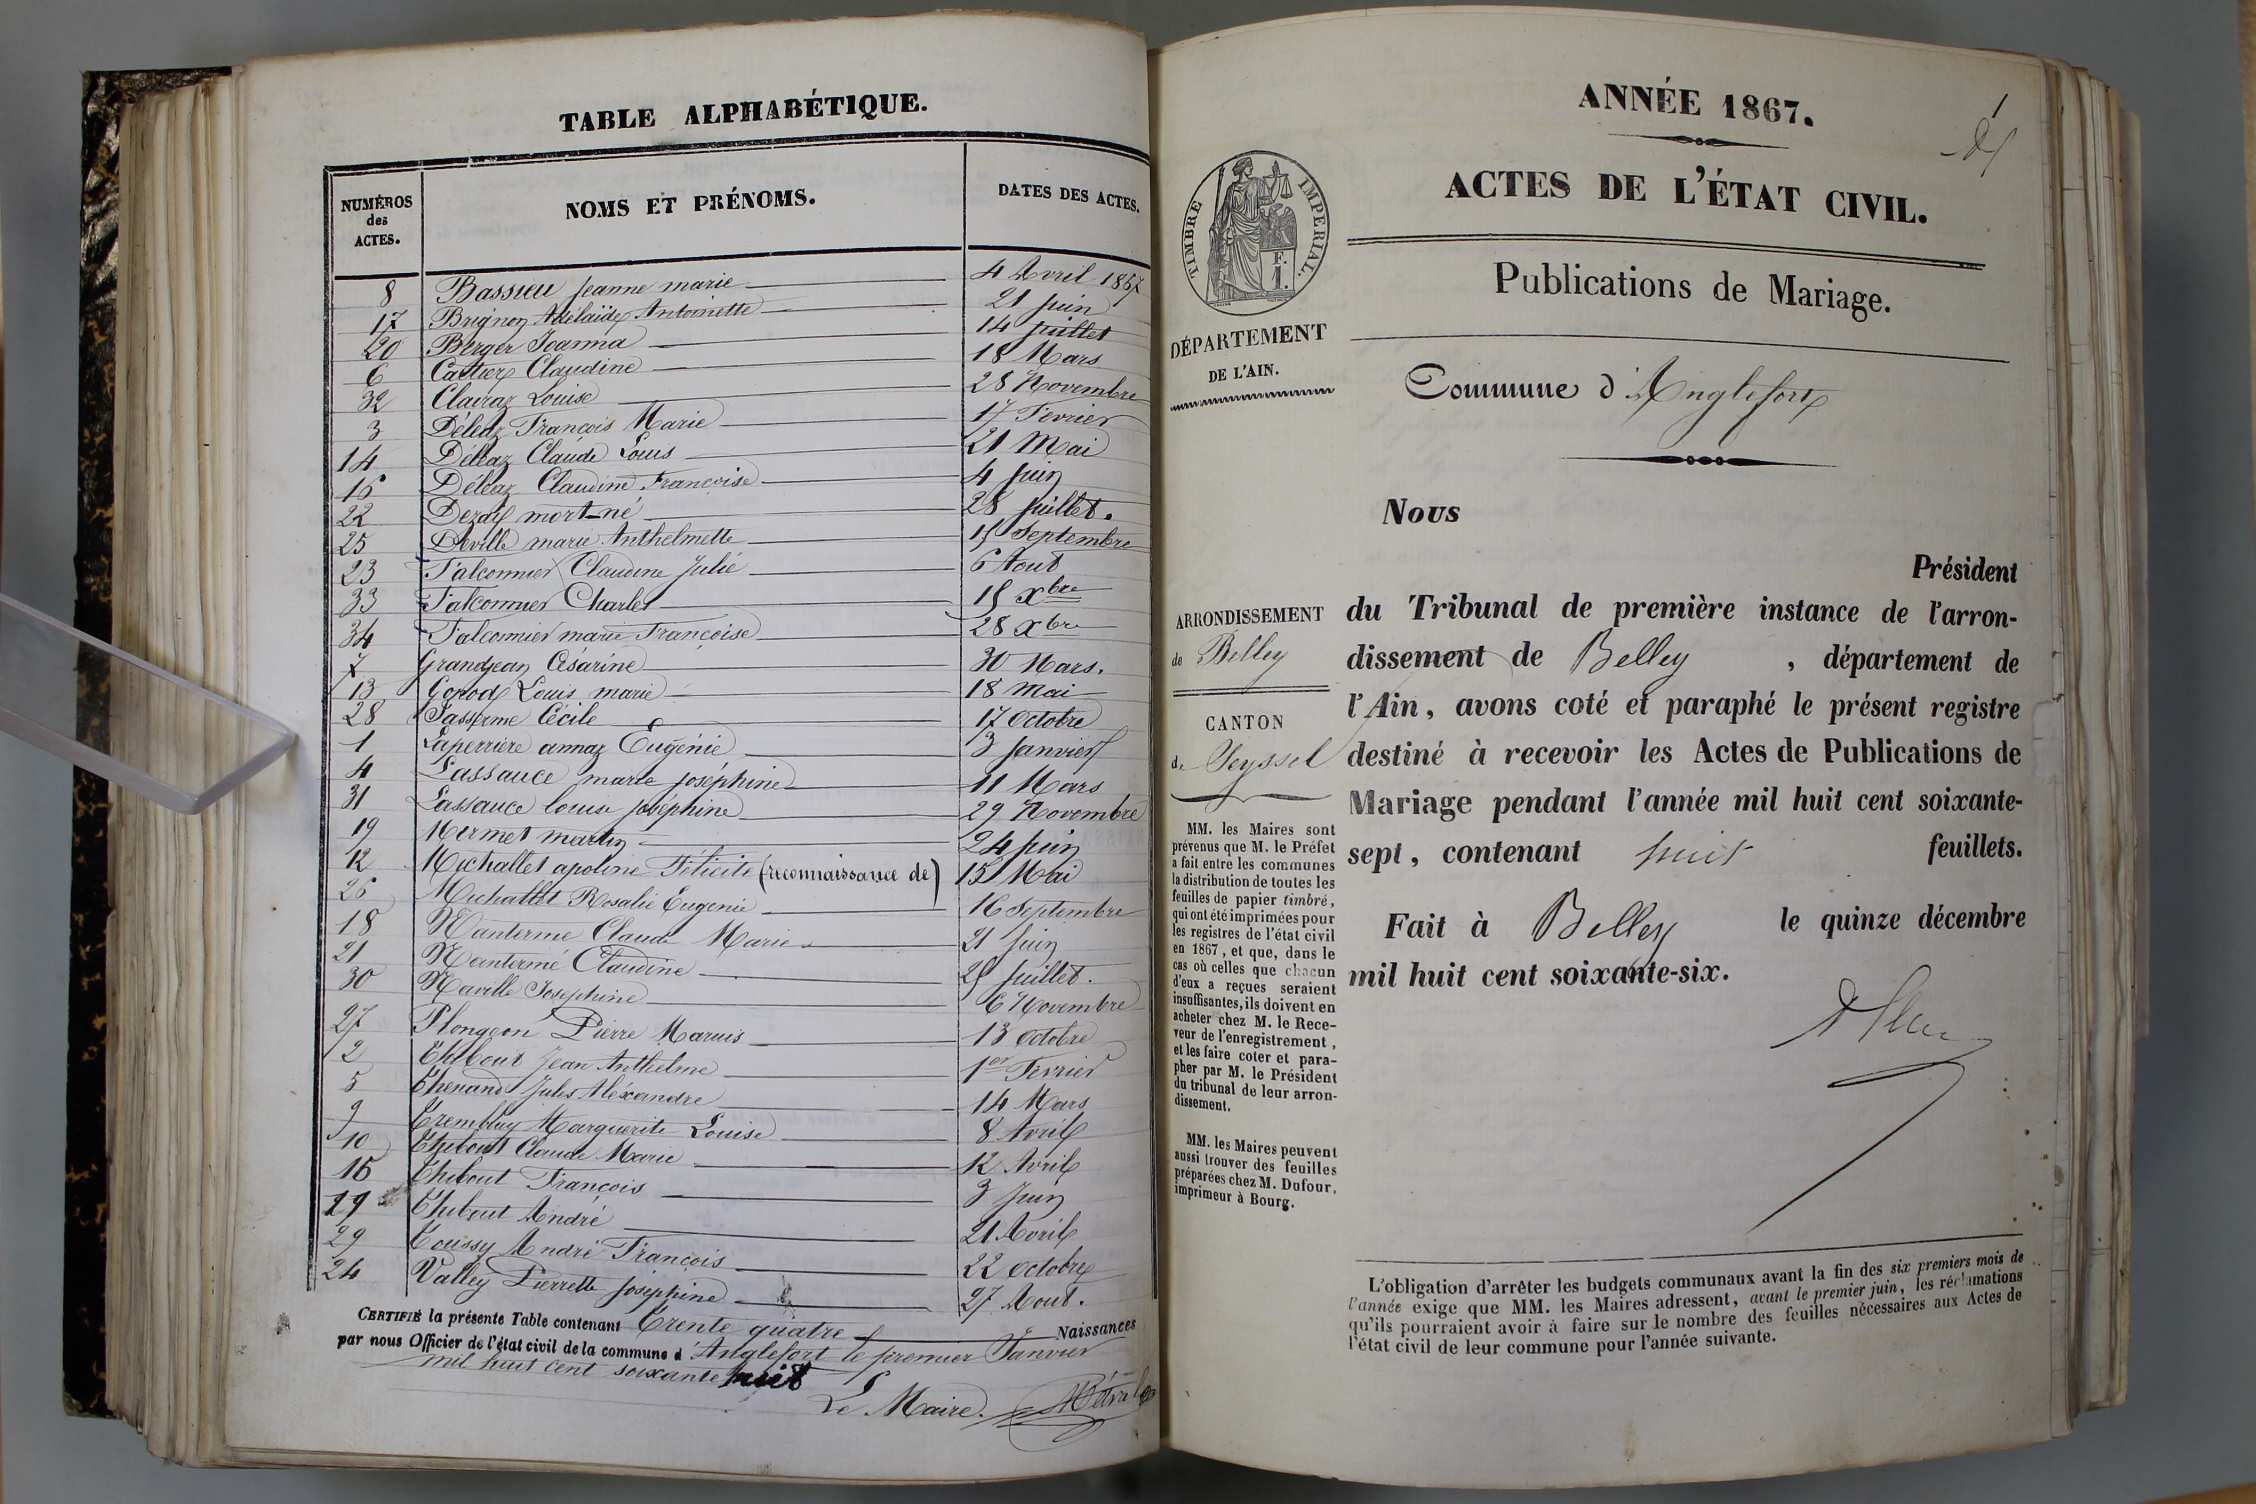 TABLE ALPHABÉTIQUE.
NUMÉROS des ACTES.
NOMS ET PRÉNOMS.
DATES DES ACTES.
8 Bassieu Jeanne marie 4 Avril 1867
17 Brignon Adélaïde Antoinette 21 Juin
20 Berger Joanna 14 Juillet
6 Cartier Claudine 18 Mars
32 Clairaz Louise 28 Novembre
3 Déléaz François Marie 17 Février
14 Déléaz Claude Louis 21 Mai
16 Déléaz Claudine Françoise 4 Juin
22 mort-né 28 Juillet.
25 Déville marie Anthelmette 15 Septembre
23 Falconnier Claudine Julie 6 Aout
33 Falconnier Charles 15 Xbre
34 Falconnier marie Françoise 28 Xbre
7 Grandjean Césarine 30 Mars.
13 Gorod Louis marie 18 Mai
28 Cécile 17 Octobre
1 Laperrière annaz Eugénie 3 Janvier
4 Lassauce marie joséphine 11 Mars
31 Lassauce louise joséphine 29 Novembre
19 Mermet martin 24 Juin
12 Michallet apoline Félicité (reconnaissance de) 15 Mai
26 Michallet Rosalie Eugénie 16 Septembre
18 Nanterme Claude Marie 21 Juin
21 Nantermé Claudine 25 Juillet.
30 Naville Joséphine 6 Novembre
27 Plongeon Pierre Marius 13 Octobre
2 Thibout Jean Anthelme 1er Février
5 Thenand Jules Aléxandre 14 Mars
9 Tremblay Marguerite Louise 8 Avril
10 Thibout Claude Marie 12 Avril
15 Thibout François 3 Juin
Thibout André 21 Avril
29 Toussy André François 22 Octobre
24 Valley Pierrette Joséphine 27 Aout.
CERTIFIÉ la présente Table contenant Trente quatre Naissances
par nous Officier de l'état civil de la commune d'Anglefort le premier Janvier
mil huit cent soixante huit
Le Maire.
ANNÉE 1867.
ACTES DE L'ÉTAT CIVIL.
Publications de Mariage.
TIMBRE IMPERIAL.
F.
1.
DÉPARTEMENT
DE L'AIN.
Commune d'Anglefort
ARRONDISSEMENT
de Belley
CANTON
de Seyssel
MM. les Maires sont
prévenus que M. le Préfet
a fait entre les communes
la distribution de toutes les
feuilles de papier timbré,
qui ont été imprimées pour
les registres de l'état civil
en 1867, et que, dans le
cas où celles que chacun
d'eux a reçues seraient
insuffisantes, ils doivent en
acheter chez M. le Rece-
veur de l'enregistrement,
et les faire coter et para-
pher par M. le Président
du tribunal de leur arron-
dissement.
MM. les Maires peuvent
aussi trouver des feuilles
préparées chez M. Dufour,
imprimeur à Bourg.
Nous
Président
du Tribunal de première instance de l'arron-
dissement de Belley, département de
l'Ain, avons coté et paraphé le présent registre
destiné à recevoir les Actes de Publications de
Mariage pendant l'année mil huit cent soixante-
sept, contenant huit feuillets.
Fait à Belley le quinze décembre
mil huit cent soixante-six.
L'obligation d'arrêter les budgets communaux avant la fin des six premiers mois de
l'année exige que MM. les Maires adressent, avant le premier juin, les réclamations
qu'ils pourraient avoir à faire sur le nombre des feuilles nécessaires aux Actes de
l'état civil de leur commune pour l'année suivante.